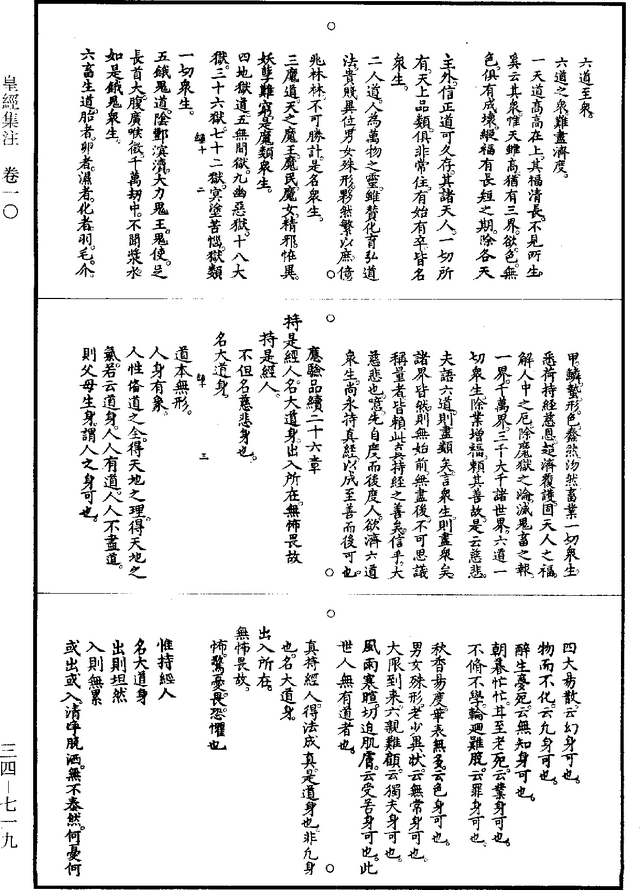 皇經集注 卷一〇
三四—七一九
六道至衆。
六道之衆難盡濟度。
一天道高高在上其福清長。不見所生
奚云其衆。惟天雖高猶有三界。欲色。無
色。俱有成壞。縱福有長短之期。除各天
主外信正道可久存。其諸天人。一切所
有。天上品類。俱非常住。有始有卒。皆名
衆生。
二人道。人為萬物之靈。雖贊化育弘道
法。貴賤異位男女殊形。夥然繁以庶。億
兆林林。不可勝計。是名衆生。
三魔道。天之魔王。魔民。魔女。精邪惟異。
妖孽難窮。是魔類衆生。
四地獄道。五無間獄。九幽惡獄。十八大
獄。三十六獄。七十二獄。冥塗苦惱。獄類
一切衆生。
五餓鬼道。陰酆溟瀆。大力鬼王。鬼使。足
長首大。腹廣喉微。千萬劫中。不聞漿水
如是餓鬼衆生。
六畜生道。胎者。卵者。濕者。化者。羽。毛。介
甲。鱗。蟄形色。蠢然沕然。畜業一切衆生
悉荷持經慈恩。超濟覆護。固天人之福。
解人中之厄。除魔獄之淪。滅鬼畜之報
一界。千萬界。三千大千諸世界。六道一
切衆生。除業增福。賴其善故。是云慈悲。
夫語六道。則盡類矣。言衆生。則盡衆矣
諸界皆然。則無始前。無盡後。不可思議
稱量者。皆賴此真持經之善矣。信乎。大
慈悲也。噫先自度而後度人。欲濟六道
衆生。尚永持真經。以成至善而後可也。
應驗品續二十六章
持是經人。名大道身。出入所在。無怖畏故
持是經人。
不但名慈悲身也。
名大道身。
道本無形。
人身有象。
人性脩道之全。得天地之理。得天地之
氣。若云道身。人人有道。人人不盡道。
則父母生身。謂人之身可也。
四大易散。云幻身可也。
物而不化。云凡身可也。
醉生夢死。云無知身可也。
朝暮忙忙。甘至老死。云業身可也。
不脩不學。輪廻難脫。云罪身可也。
秋香易度。華表無戔。云色身可也。
男女殊形。老少異狀。云無常身可也。
大限到來。六親難顧。云獨夫身可也。
風雨寒暄。切迫肌膚。云受苦身可也。此
世人無有道者也。
真持經人。得法成真。是道身也。非凡身
也。名大道身。
出入所在。
無怖畏故。
怖。驚。憂。畏。恐。懼也
惟持經人
名大道身
出則坦然
入則無累
或出或入。清淨脫洒。無不泰然。何憂何